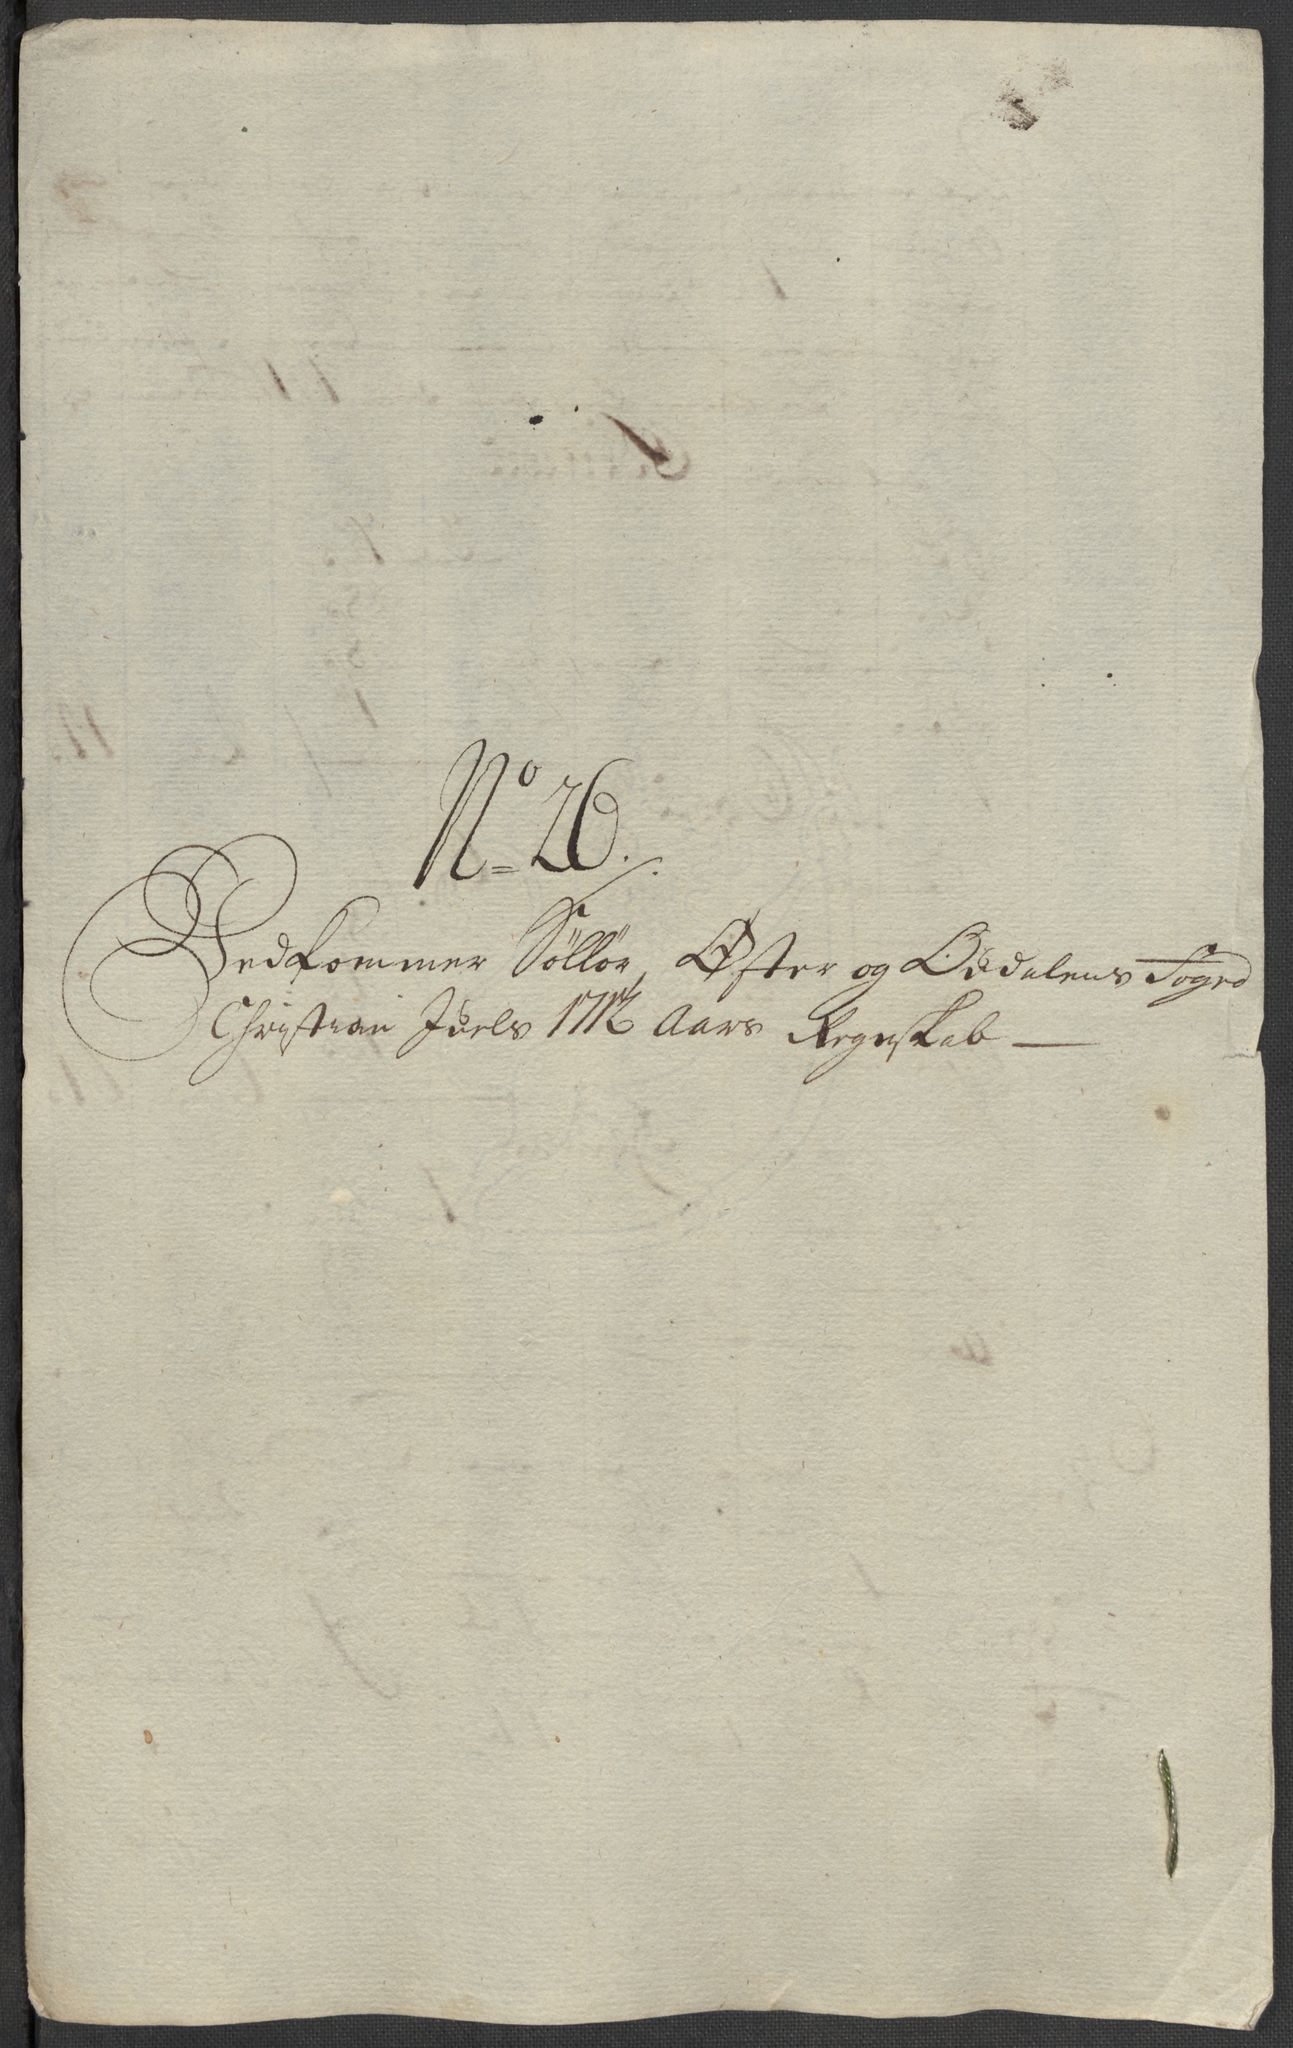 No 26.
Vedkommer Söllör, Øster og Oddalens Foged
Christian Juels 1712 Aars Regnskab